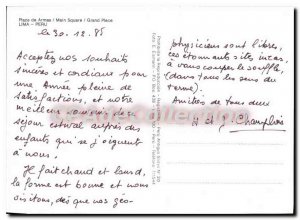 Plaza de Armas / Main Square / Grand Place
LIMA - PERU
le 30.12.85
Acceptez nos souhaits
sincères et cordiaux pour
une Année pleine de
satisfactions, et notre
meilleur souvenir du
séjour estival auprès des
enfants qui se joignent
à nous.
Il fait chaud et lourd,
la forme est bonne et nous
visitons, dès que nos géo-
physiciens sont libres,
ces étonnants sites incas,
à vous couper le souffle,
(dans tous les sens du
terme).
Amitiés de tous deux